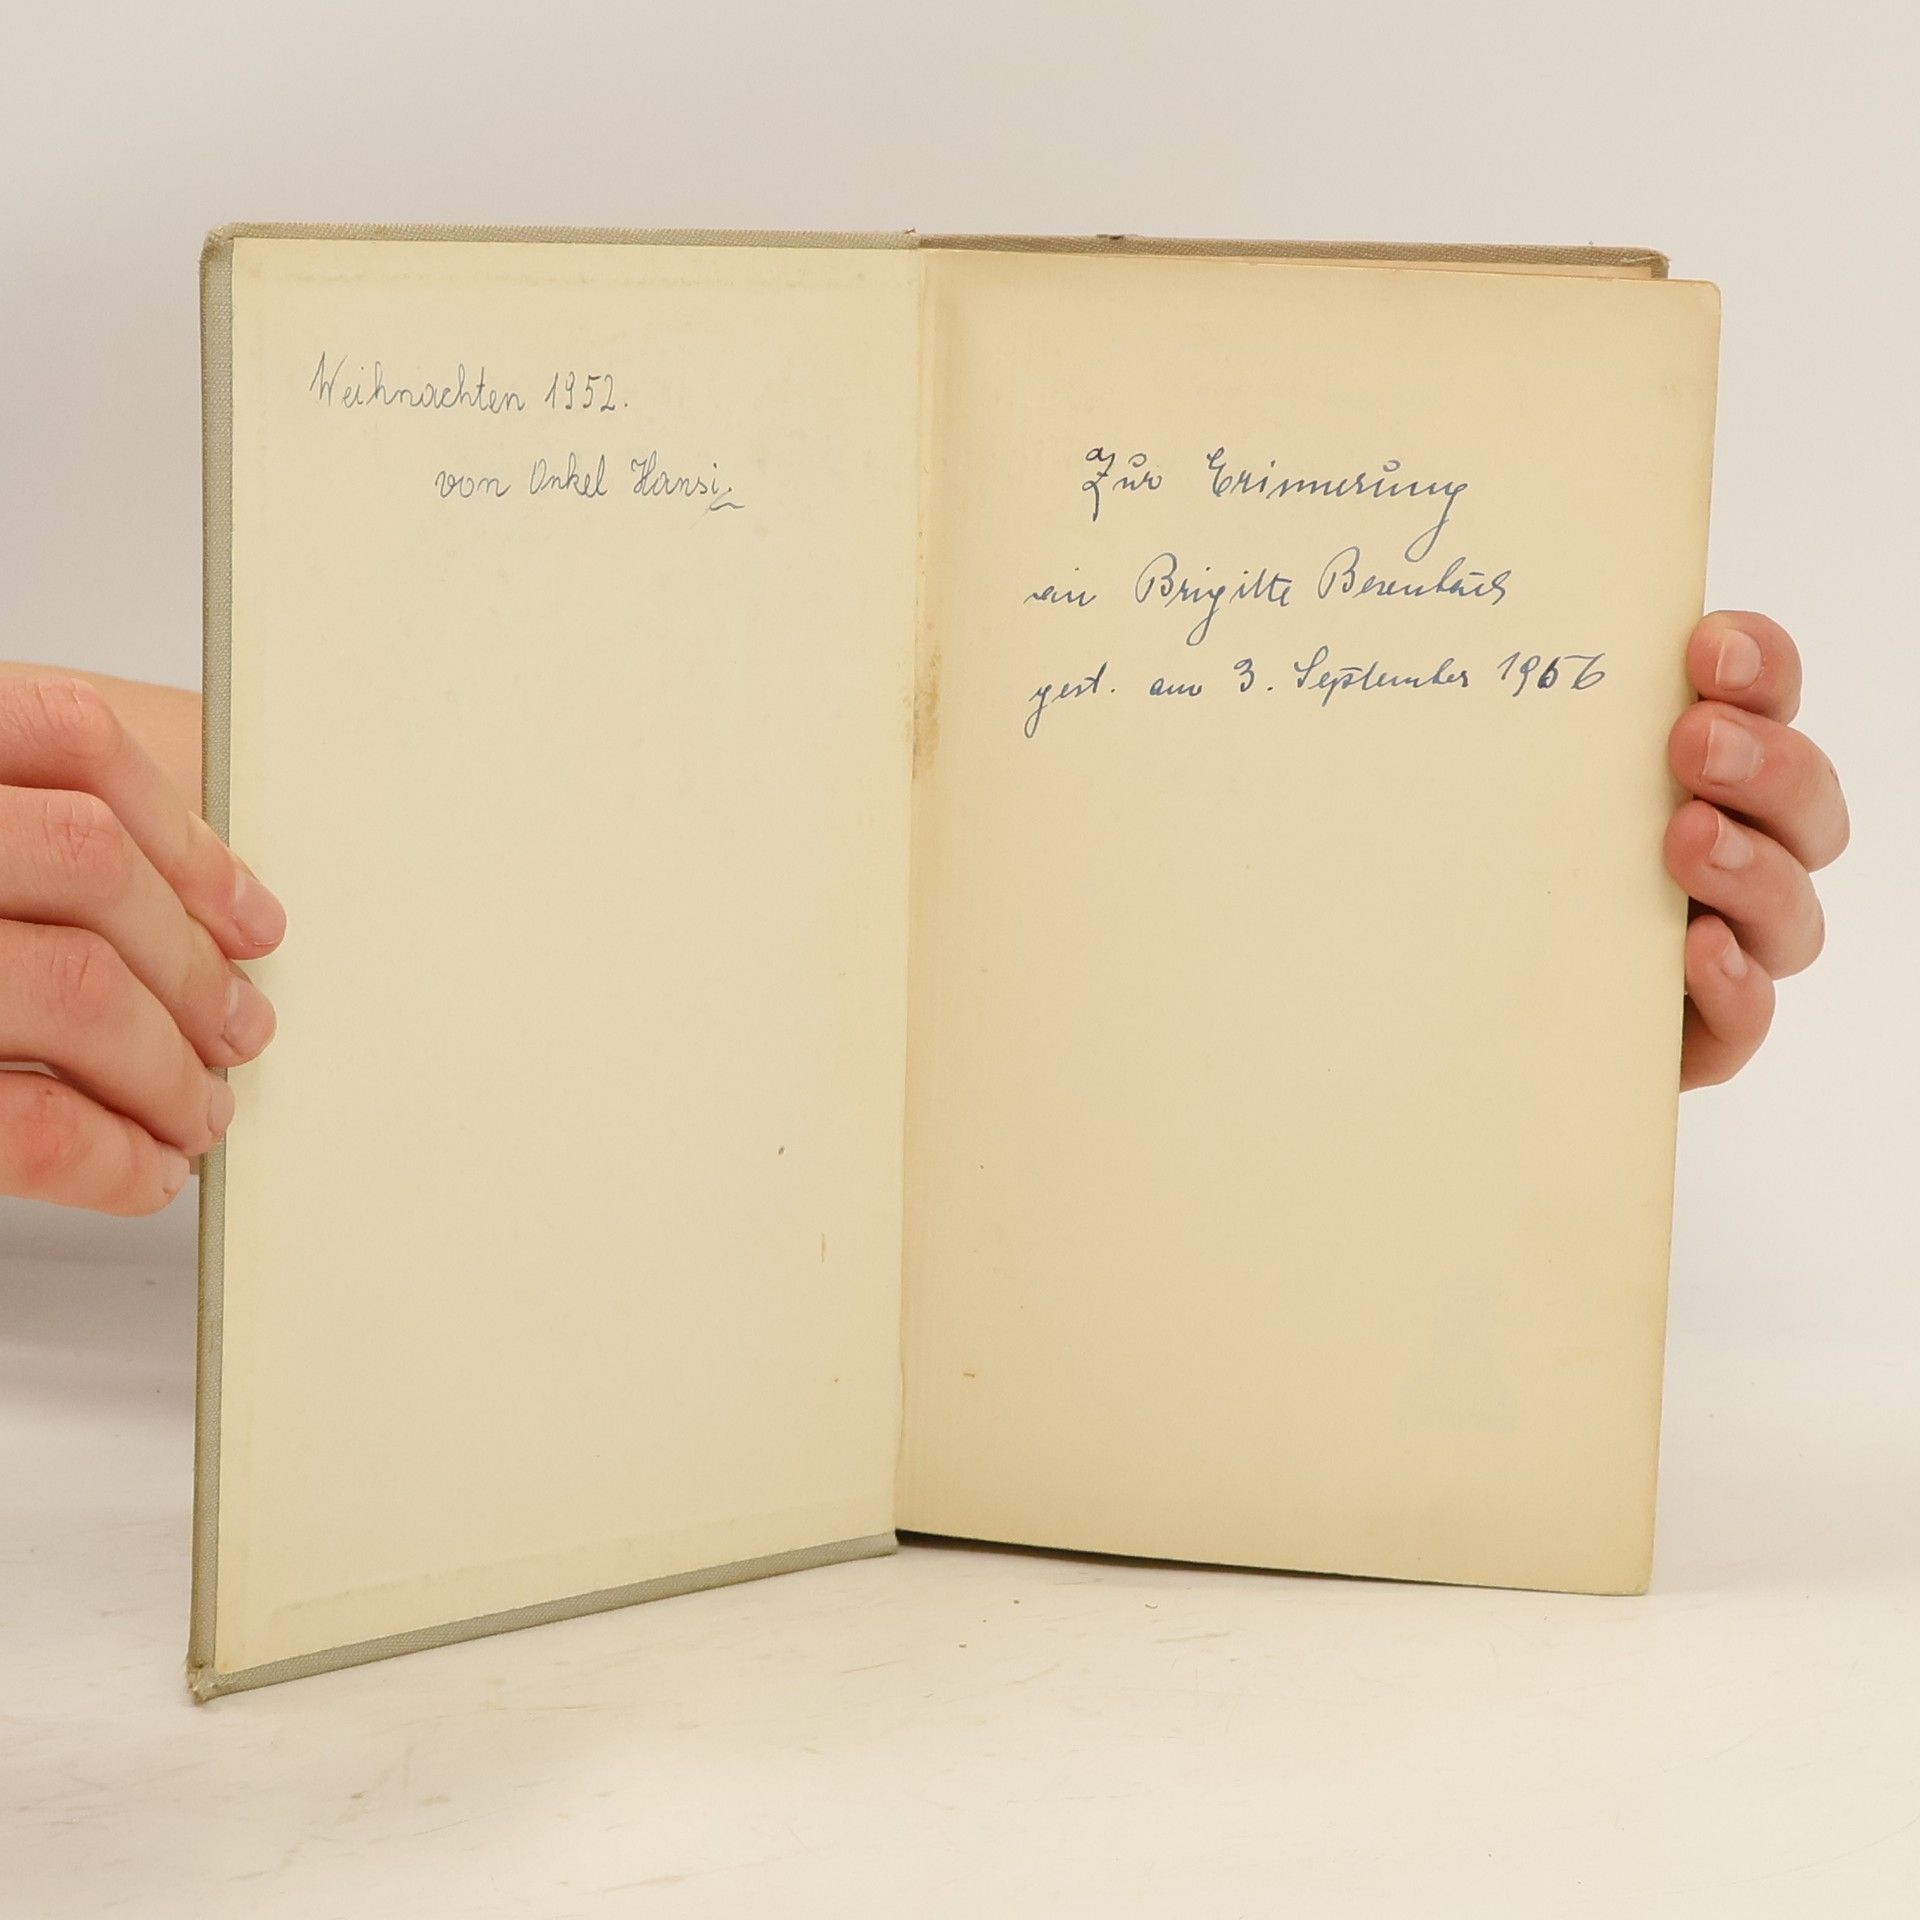 Weihnachten 1952.
von Onkel Hansi.
Zur Erinnerung
an Brigitte
gest. am 3. September 1956